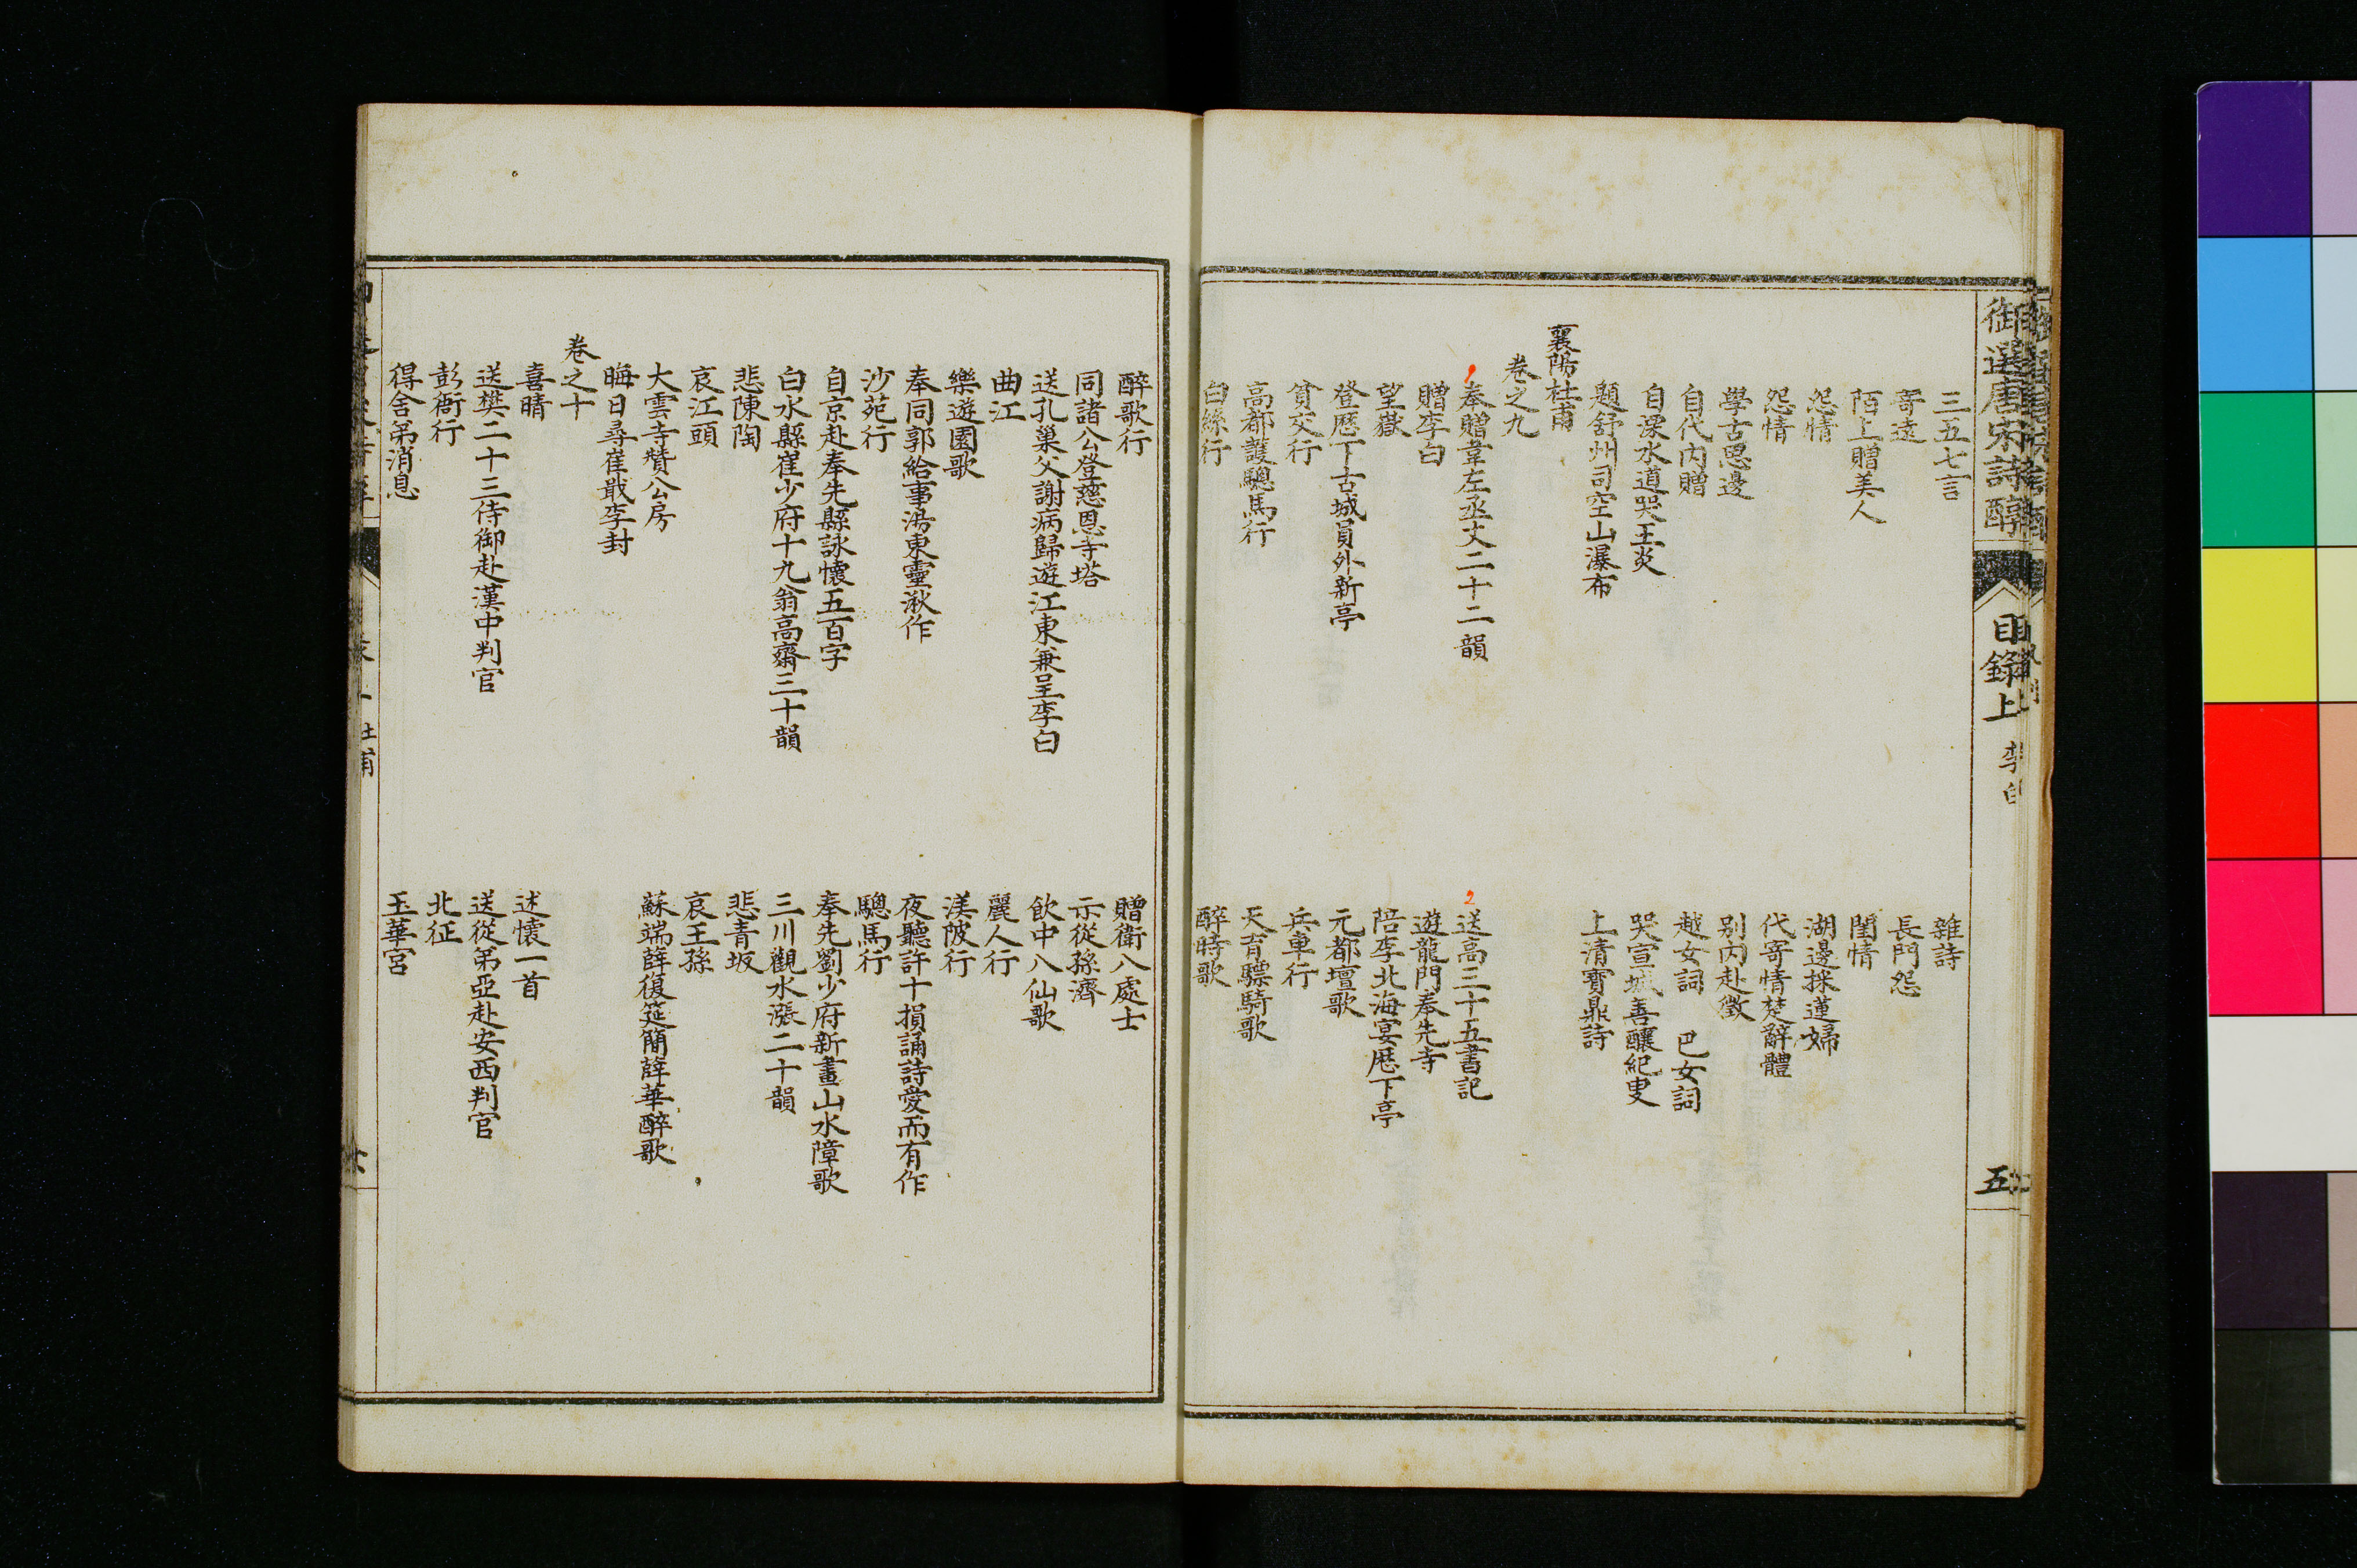 御選唐宋詩醇
目錄上
李白
五
三五七言
雜詩
寄遠
長門怨
陌上贈美人
閨情
怨情
湖邊採蓮婦
怨情
代寄情楚辭體
學古思邊
别内赴徵
自代内贈
越女詞 巴女詞
自溧水道哭王炎
哭宣城善釀紀叟
題舒州司空山瀑布
上清寶鼎詩
襄陽杜甫
卷之九
1
奉贈韋左丞丈二十二韻
2
送高三十五書記
贈李白
遊龍門奉先寺
望嶽
陪李北海宴歷下亭
登歷下古城員外新亭
元都壇歌
貧交行
兵車行
高都護驄馬行
天育驃騎歌
白絲行
醉時歌
醉歌行
贈衛八處士
同諸公登慈恩寺塔
示從孫濟
送孔巢父謝病歸遊江東兼呈李白
飲中八仙歌
曲江
麗人行
樂遊園歌
渼陂行
奉同郭給事湯東靈湫作
夜聽許十損誦詩愛而有作
沙苑行
驄馬行
自京赴奉先縣詠懷五百字
奉先劉少府新畫山水障歌
白水縣崔少府十九翁高齋三十韻
三川觀水漲二十韻
悲陳陶
悲青坂
哀江頭
哀王孫
大雲寺贊公房
蘇端薛復筵簡薛華醉歌
晦日尋崔戢李封
卷之十
喜晴
述懷一首
送樊二十三侍御赴漢中判官
送從弟亞赴安西判官
彭衙行
北征
得舍弟消息
玉華宮